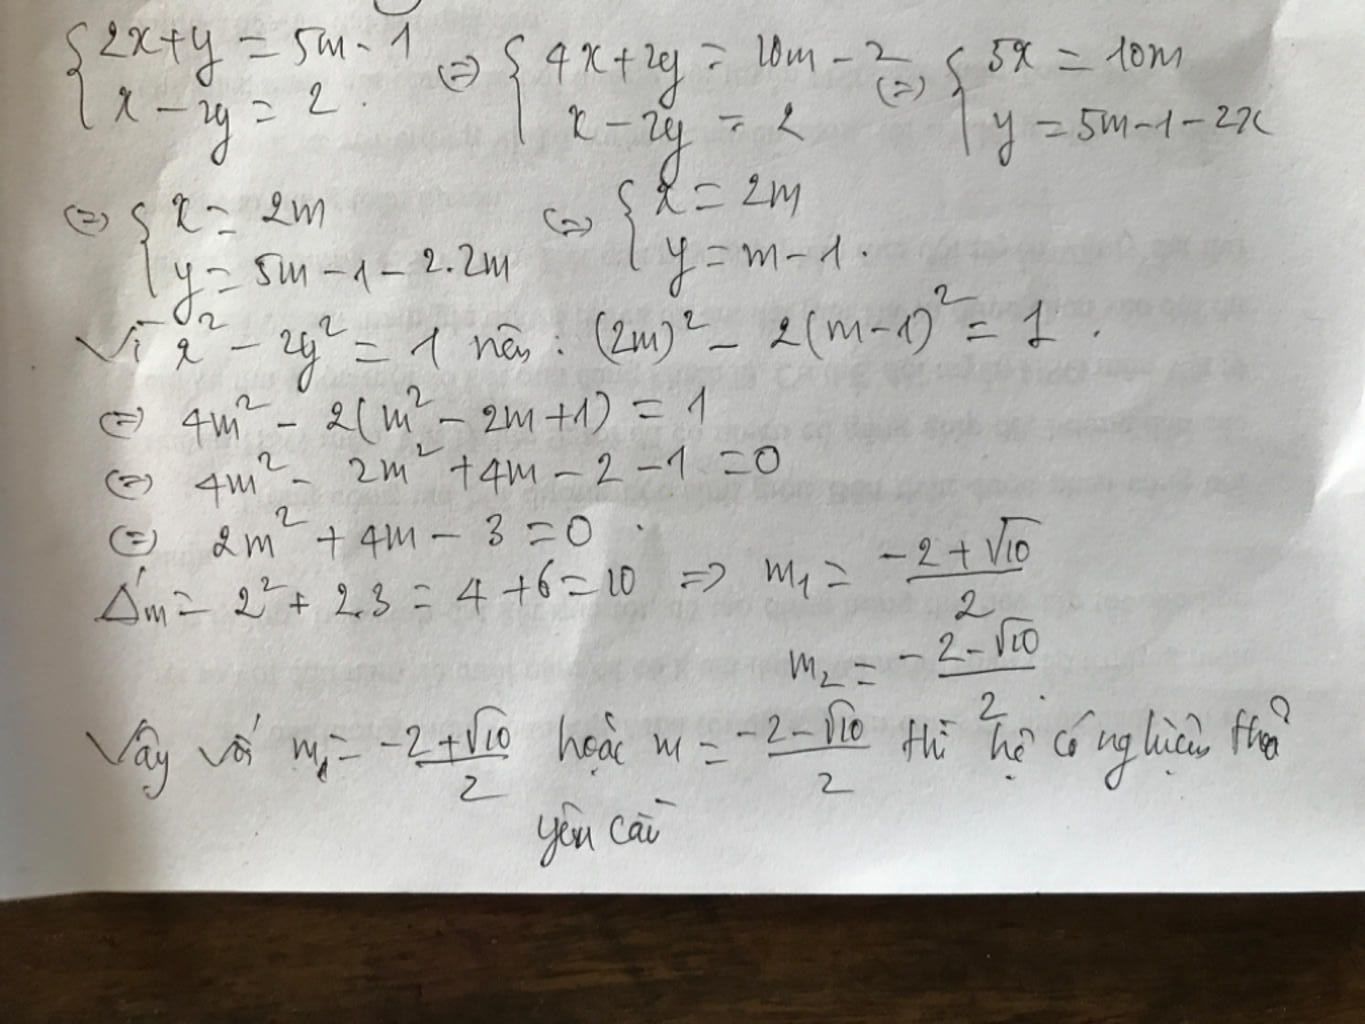 {2x+y = 5m-1 / x-2y = 2. (=) {4x+2y = 10m-2 / x-2y = 2 (=) {5x = 10m / y = 5m-1-2x
(=) {x = 2m / y = 5m-1-2.2m (=) {x = 2m / y = m-1.
Vì x² - 2y² = 1 nên: (2m)² - 2(m-1)² = 1.
(=) 4m² - 2(m² - 2m+1) = 1
(=) 4m² - 2m² + 4m - 2 - 1 = 0
(=) 2m² + 4m - 3 = 0.
Δ'm = 2² + 2.3 = 4 + 6 = 10 => m₁ = (-2+√10)/2
m₂ = -(2-√10)/2.
Vậy với m₁ = (-2+√10)/2 hoặc m = (-2-√10)/2 thì hệ có nghiệm thoả
yêu cầu